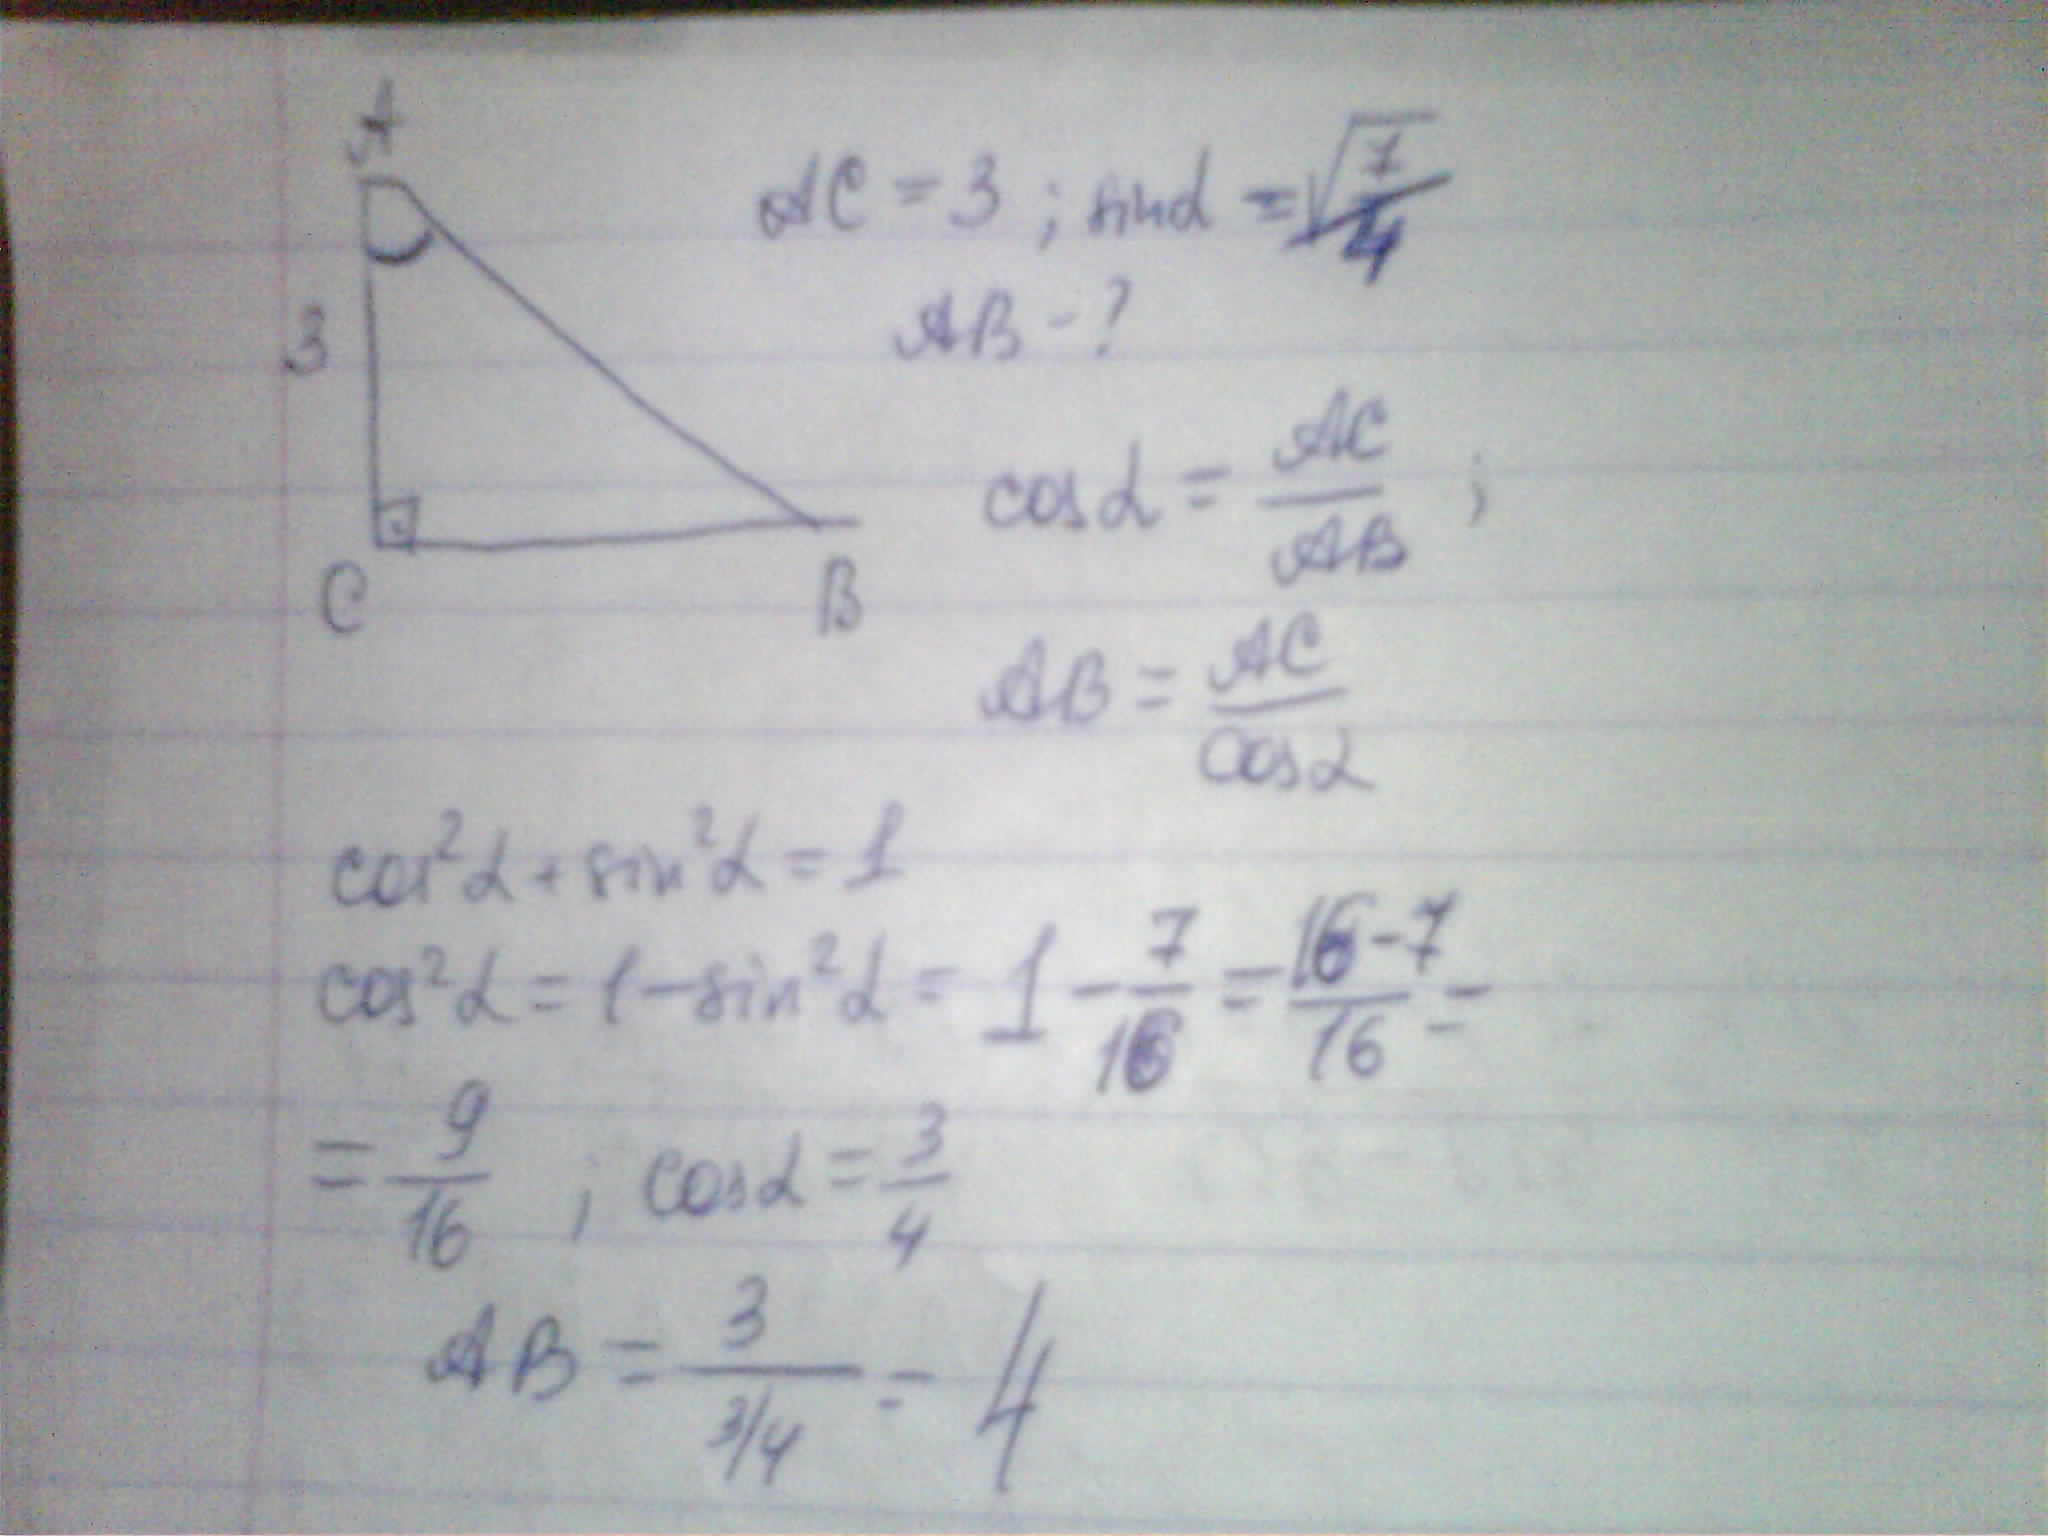 A
AC = 3 ; sin α = √7/4
AB - ?
3
cos α = AC/AB ;
C
B
AB = AC/cos α
cos²α + sin²α = 1
cos²α = 1 - sin²α = 1 - 7/16 = 16-7/16 =
= 9/16 ; cos α = 3/4
AB = 3/3/4 = 4